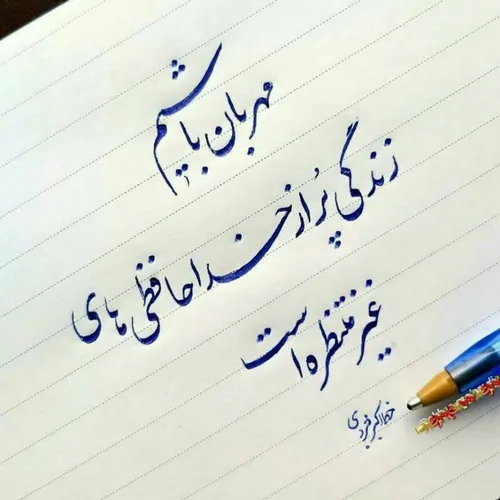 مهربان باشیم
زندگی پُر از خداحافظی های
غیرمنتظره است